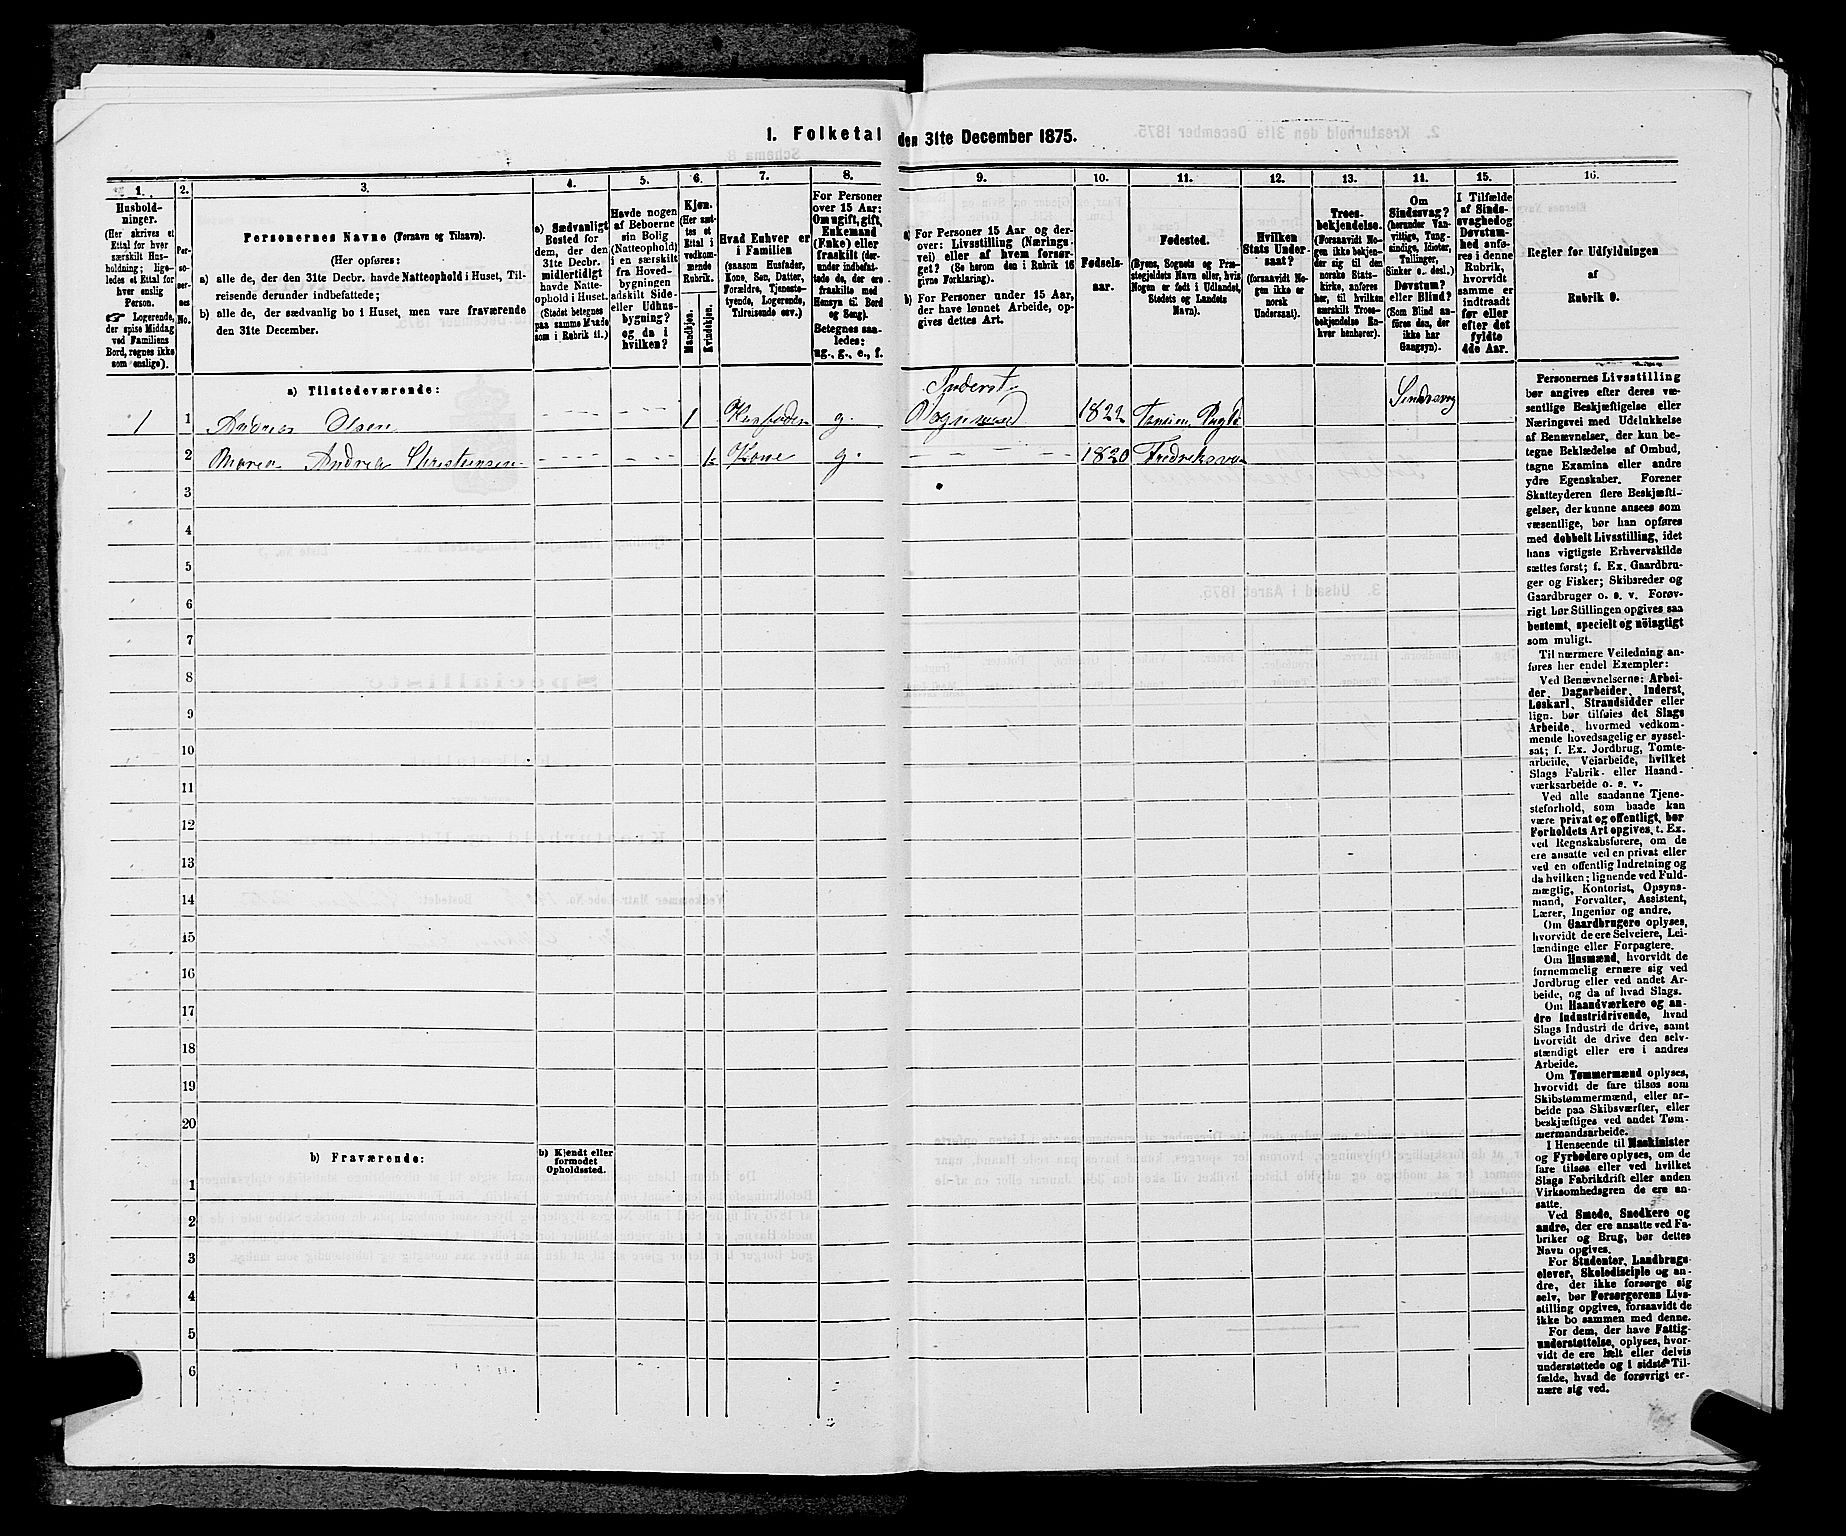 1. Folketal den 31te December 1875.
1. 2. 3. 4. 5. 6. 7. 8. 9. 10. 11. 12. 13. 14. 15. 16.
Husbold-
ninger.
(Her skrives et
Ettal for hver
særskilt Hus-
holdning; lige-
ledes et Ettal for
hver enslig
Person.
☞ Logerende,
der spise Middag
ved Familiens
Bord, regnes ikke
som enslige).
Per-
so-
ner-
nes
No.
Personernes Navne (Fornavn og Tilnavn).
(Her opføres:
a) alle de, der den 31te Decbr. havde Natteophold i Huset, Til-
reisende derunder indbefattede;
b) alle de, der sædvanlig bo i Huset, men vare fraværende
den 31te December.
a) Sædvanligt
Bosted for
dem, der den
31te Decbr.
midlertidigt
havde Natte-
ophold i Huset.
(Stedet betegnes
paa samme Maade
som i Rubrik 11.)
Havde nogen
af Beboerne
sin Bolig
(Natteophold)
i en særskilt
fra Hoved-
bygningen
adskilt Side-
eller Udhus-
bygning?
og da i
hvilken?
Kjøn.
(Her sæt-
tes et
Ettal i
vedkom-
mende
Rubrik.
Mandkjøn.
Kvindekjøn.
Hvad Enhver er
i Familien
(saasom Husfader,
Kone, Søn, Datter,
Forældre, Tjeneste-
tyende, Logerende,
Tilreisende osv.)
For Personer
over 15 Aar:
Om ugift, gift,
Enkemand
(Enke) eller
fraskilt (der-
under indbefat-
tede de, der ere
fraskilte med
Hensyn til Bord
og Seng).
Betegnes saa-
ledes:
ug., g., e., f.
a) For Personer 15 Aar og der-
over: Livsstilling (Nærings-
vei) eller af hvem forsør-
get? (Se herom den i Rubrik 16
givne Forklaring).
b) For Personer under 15 Aar,
der have lønnet Arbeide, op-
gives dettes Art.
Fødsels-
aar.
Fødested.
(Byens, Sognets og Præ-
stegjeldets Navn eller, hvis
Nogen er født i Udlandet,
Stedets og Landets
Navn).
Hvilken
Stats Under-
saat?
(forsaavidt No-
gen ikke er
norsk
Undersaat).
Troes-
bekjendelse.
(Forsaavidt No-
gen ikke bekjen-
der sig til den
norske Stats-
kirke, anføres
her, til hvilken
særskilt Troes-
bekjendelse En-
hver henhører).
Om
Sindssvag?
(herunder Van-
vittige, Tung-
sindige, Idioter,
Tullinger,
Sinker o. desl.)
Døvstum?
eller Blind?
(Som Blind an-
føres den, der
ikke har
Gangsyn).
I Tilfælde
af Sinds-
svaghed og
Døvstum-
hed anfø-
res i denne
Rubrik,
hvorvidt
samme er
indtraadt
før eller
efter det
fyldte
4de Aar.
Regler for Udfyldningen
af
Rubrik 9.
a) Tilstedeværende:
1 1 Olsen 1 g. 1822 Sindssvag
2 Maren Andrea Christensen 1 Kone g. 1820
3
4
5
6
7
8
9
10
11
12
13
14
15
16
17
18
19
20
b) Fraværende:
b) Kjendt eller
formodet
Opholdssted.
1
2
3
4
5
6
Personernes Livsstilling
bør angives efter deres væ-
sentlige Beskjæftigelse eller
Næringsvei med Udelukkelse
af Benævnelser, der kun be-
tegne Beklædelse af Ombud,
tagne Examina eller andre
ydre Egenskaber. Forener
Skatteyderen flere Beskjæfti-
gelser, der kunne ansees som
væsentlige, bør han opføres
med dobbelt Livsstilling, idet
hans vigtigste Erhvervskilde
sættes først; f. Ex. Gaardbru-
ger og Fisker; Skibsreder og
Gaardbruger o. s. v. Forøv-
rigt bør Stillingen opgives saa
bestemt, specielt og nøiagtigt
som muligt.
Til nærmere Veiledning an-
føres her endel Exempler:
Ved Benævnelserne: Arbei-
der, Dagarbeider, Inderst,
Løskarl, Strandsidder eller
lign. bør tilføies det Slags
Arbeide, hvormed vedkom-
mende hovedsagelig er syssel-
sat; f. Ex. Jordbrug, Tomte-
arbeide, Veiarbeide, hvilket
Slags Fabrik- eller Haand-
værksarbeide o. s. v.
Ved alle saadanne Tjene-
steforhold, som baade kan
være privat og offentligt, bør
Forholdets Art opgives, t. Ex.
ved Regnskabsførere, om de
ere ansatte ved en privat eller
ved en offentlig Indretning og
da hvilken; lignende ved Fuld-
mægtig, Kontorist, Opsyns-
mand, Forvalter, Assistent,
Lærer, Ingeniør og andre.
Om Gaardbrugere oplyses,
hvorvidt de ere Selveiere, Lei-
lændinge eller Forpagtere.
Om Husmænd, hvorvidt de
fornemmelig ernære sig ved
Jordbrug eller ved andet Ar-
beide, og da af hvad Slags.
Om Haandværkere og an-
dre Industridrivende, hvad
Slags Industri de drive, samt
hvorvidt de drive den selv-
stændigt eller ere i andres
Arbeide.
Om Tømmermænd oplyses,
hvorvidt de fare tilsøs som
Skibstømmermænd, eller ar-
beide paa Skibsværfter, eller
beskjæftiges ved andet Tøm-
mermandsarbeide.
I Henseende til Maskinister
og Fyrbødere oplyses, om de
fare tilsøs eller ved hvilket
Slags Fabrikdrift eller anden
Virksomhedsgren de ere an-
satte.
Ved Smede, Snedkere og
andre, der ere ansatte ved Fa-
briker og Brug, bør dettes
Navn opgives.
For Studenter, Landbrugs-
elever, Skoledisciple og an-
dre, der ikke forsørge sig
selv, bør Forsørgerens Livs-
stilling opgives, forsaavidt de
ikke bo sammen med denne.
For dem, der have Fattig-
understøttelse, oplyses, hvor-
vidt de ere helt eller delvis
understøttede og i sidste Til-
fælde, hvad de forøvrigt er-
nære sig ved.